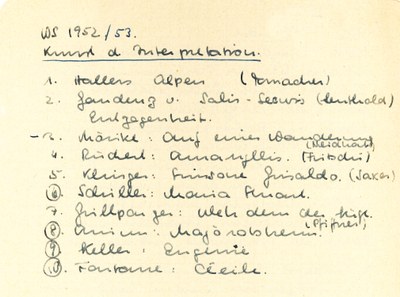 WS 1952/53.
Kunst d. Interpretation.
1. Hallers Alpen
2. Gaudenz v. Salis-Seewis (Leuthold)
Entgegenheit.
3. Mörike: Auf einer Wanderung
(Neidhart)
4. Rückert: Amaryllis. (Fritschi)
5. Klinger: Simsone Grisaldo. (Saxer)
6. Schiller: Maria Stuart.
7. Grillparzer: Weh dem der lügt.
(Pfister)
8. Arnim: Majoratsherrn.
9. Keller: Eugenie
10. Fontane: Cécile.